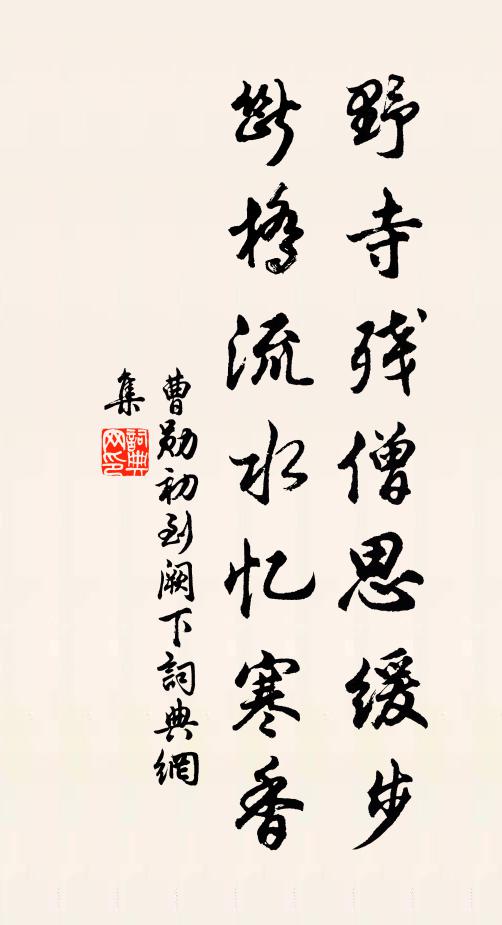 野寺残僧思缓步
断桥流水忆寒香
曹勋初到阙下詞典網
集
詞典
网印